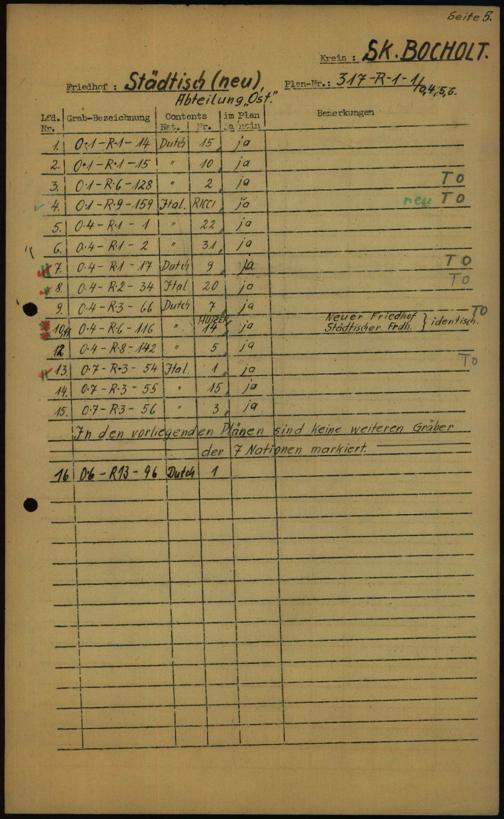 Seite 5.
Kreis : SK. BOCHOLT.
Friedhof : Städtisch (neu), Plan-Nr.: 317-R-1-1/0,4,5,6.
Abteilung „Ost."
Lfd. Nr. Grab-Bezeichnung Contents Nat. Nr. im Plan ja nein Bemerkungen
1. 0·1-R-1-14 Dutch 15 ja
2. 0·1-R-1-15 " 10 ja
3. 0·1-R-6-128 " 2 ja TO
4. 0·1-R-9-159 Ital. RICCI ja neu TO
5. 0·4-R-1-1 " 22 ja
6. 0·4-R-1-2 " 31 ja
7. 0·4-R-1-17 Dutch 9 ja TO
8. 0·4-R-2-34 Ital 20 ja TO
9. 0·4-R-3-66 Dutch 7 ja
10/11 0·4-R-6-116 " 14 ja Neuer Friedhof Städtischer Frdh. } identisch. TO
12 0·4-R-8-142 " 5 ja
13. 0·7-R-3-54 Ital. 1 ja TO
14. 0·7-R-3-55 " 15 ja
15. 0·7-R-3-56 " 3 ja
In den vorliegenden Plänen sind keine weiteren Gräber
der 7 Nationen markiert.
16 0·6-R13-96 Dutch 1